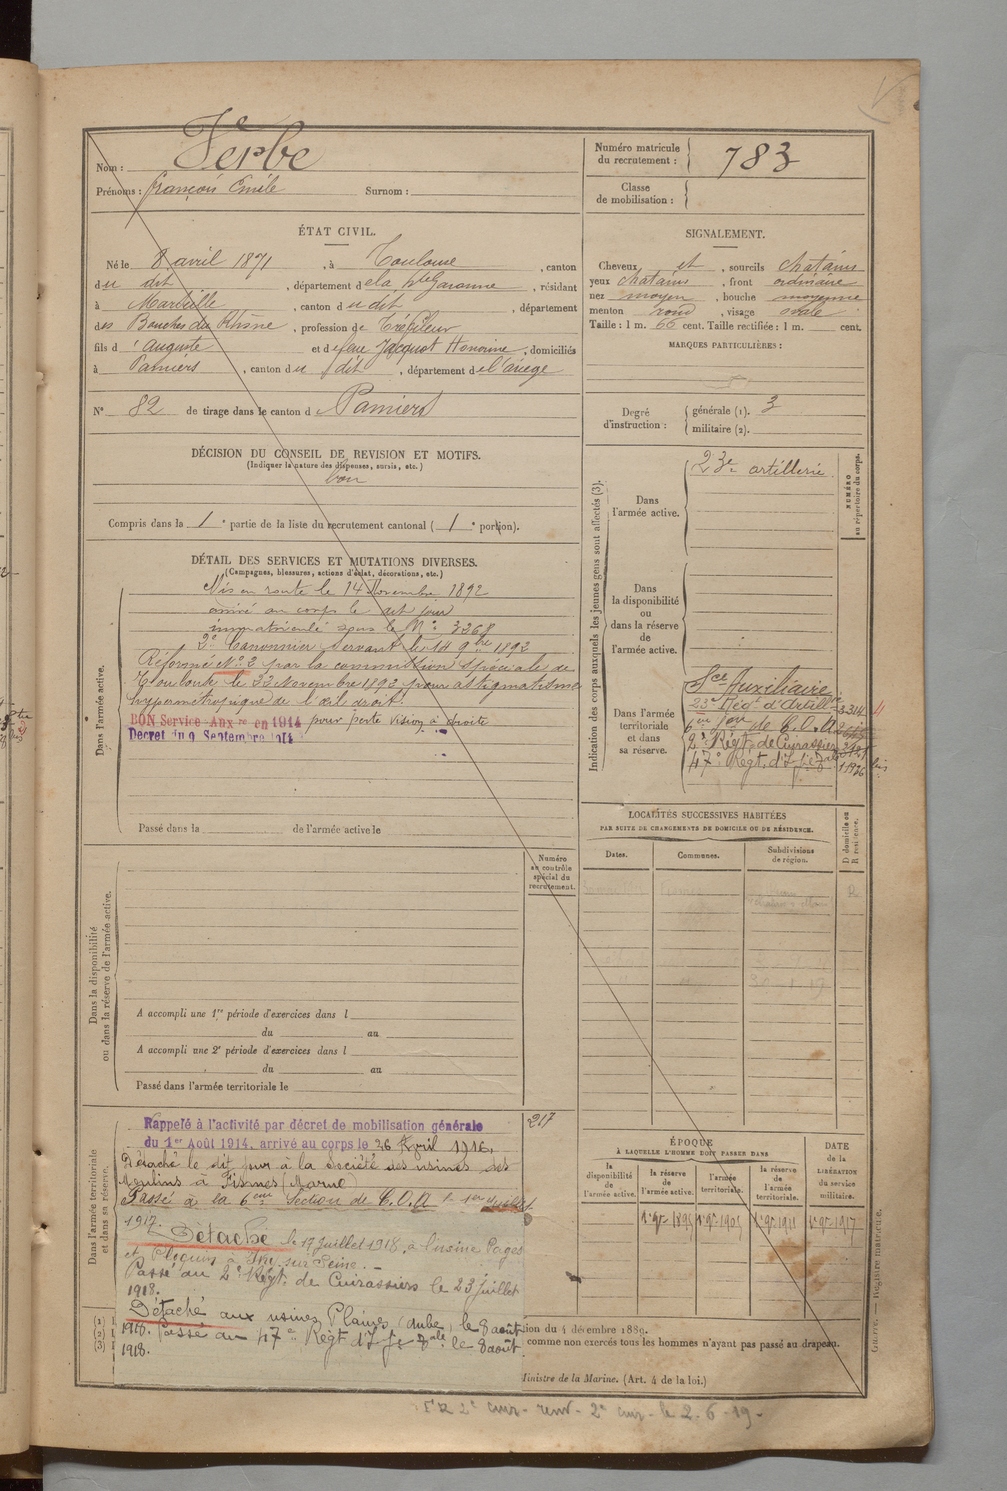 Nom : Ferbe
Prénoms : François Emile Surnom :
Numéro matricule du recrutement : 783
Classe de mobilisation :
ÉTAT CIVIL.
Né le 8 avril 1871, à Toulouse, canton
du dit, département de la Hte Garonne, résidant
à Marseille, canton du dit, département
des Bouches du Rhône, profession de Tréfileur
fils d'Auguste et de feue Jacquot Honorine, domiciliés
à Pamiers, canton du dit, département de l'ariège
N° 82 de tirage dans le canton de Pamiers
SIGNALEMENT.
Cheveux et, sourcils chatains
yeux chatains, front ordinaire
nez moyen, bouche moyenne
menton rond, visage ovale
Taille : 1 m. 66 cent. Taille rectifiée : 1 m. cent.
MARQUES PARTICULIÈRES :
Degré d'instruction : générale (1). 3
militaire (2).
DÉCISION DU CONSEIL DE REVISION ET MOTIFS.
(Indiquer la nature des dispenses, sursis, etc.)
bon
Compris dans la 1e partie de la liste du recrutement cantonal (1e portion).
DÉTAIL DES SERVICES ET MUTATIONS DIVERSES.
(Campagnes, blessures, actions d'éclat, décorations, etc.)
Dans l'armée active.
Mis en route le 14 Novembre 1892
arrivé au corps le dit jour
immatriculé sous le N° 3268
2e Canonnier Servant le 14 9bre 1892
Réformé N° 2 par la commission spéciale de
Toulouse le 23 Novembre 1892 pour astigmatisme
hypermétropique de l'œil droit.
BON Service Auxre en 1914 pour perte vision à droite
Décret du 9 Septembre 1914
Passé dans la de l'armée active le
Indication des corps auxquels les jeunes gens sont affectés (3).
NUMÉRO au répertoire du corps.
Dans l'armée active.
23e artillerie
Dans la disponibilité ou dans la réserve de l'armée active.
Dans l'armée territoriale et dans sa réserve.
Sce Auxiliaire
23e Régt d'Artillie
6eme Son de C.O.A
2e Régt de Cuirassiers
47e Régt d'Ifie
LOCALITÉS SUCCESSIVES HABITÉES
PAR SUITE DE CHANGEMENTS DE DOMICILE OU DE RÉSIDENCE.
D domicile ou R résidence.
Dates. Communes. Subdivisions de région.
R
Numéro au contrôle spécial du recrutement.
Dans la disponibilité ou dans la réserve de l'armée active.
A accompli une 1re période d'exercices dans l
du au
A accompli une 2e période d'exercices dans l
du au
Passé dans l'armée territoriale le
217
Dans l'armée territoriale et dans sa réserve.
Rappelé à l'activité par décret de mobilisation générale
du 1er Août 1914, arrivé au corps le 26 Avril 1916.
Détaché le dit jour à la Société des usines des
Moulins à Fismes (Marne)
Passé à la 6eme Section de C.O.A le 1er Juillet
1917.
Détaché le 17 juillet 1918, à l'usine Pagès
Passé au 2e Régt. de Cuirassiers le 23 juillet
1918.
Détaché aux usines Plaines (aube) le 8 août
1918. Passé au 47e Régt d'Ifie le 8 août
1918.
ÉPOQUE
À LAQUELLE L'HOMME DOIT PASSER DANS
la disponibilité de l'armée active. la réserve de l'armée active. l'armée territoriale. la réserve de l'armée territoriale.
DATE de la LIBÉRATION du service militaire.
1er 9bre 1895 1er 9bre 1905 1er 9bre 1911 1er 9bre 1917
(1)
(2)
(3)
ion du 4 décembre 1889.
comme non exercés tous les hommes n'ayant pas passé au drapeau.
Ministre de la Marine. (Art. 4 de la loi.)
Guerre. — Registre matricule.
2e cuir - renv - 2e cuir - le 2-6-19 -